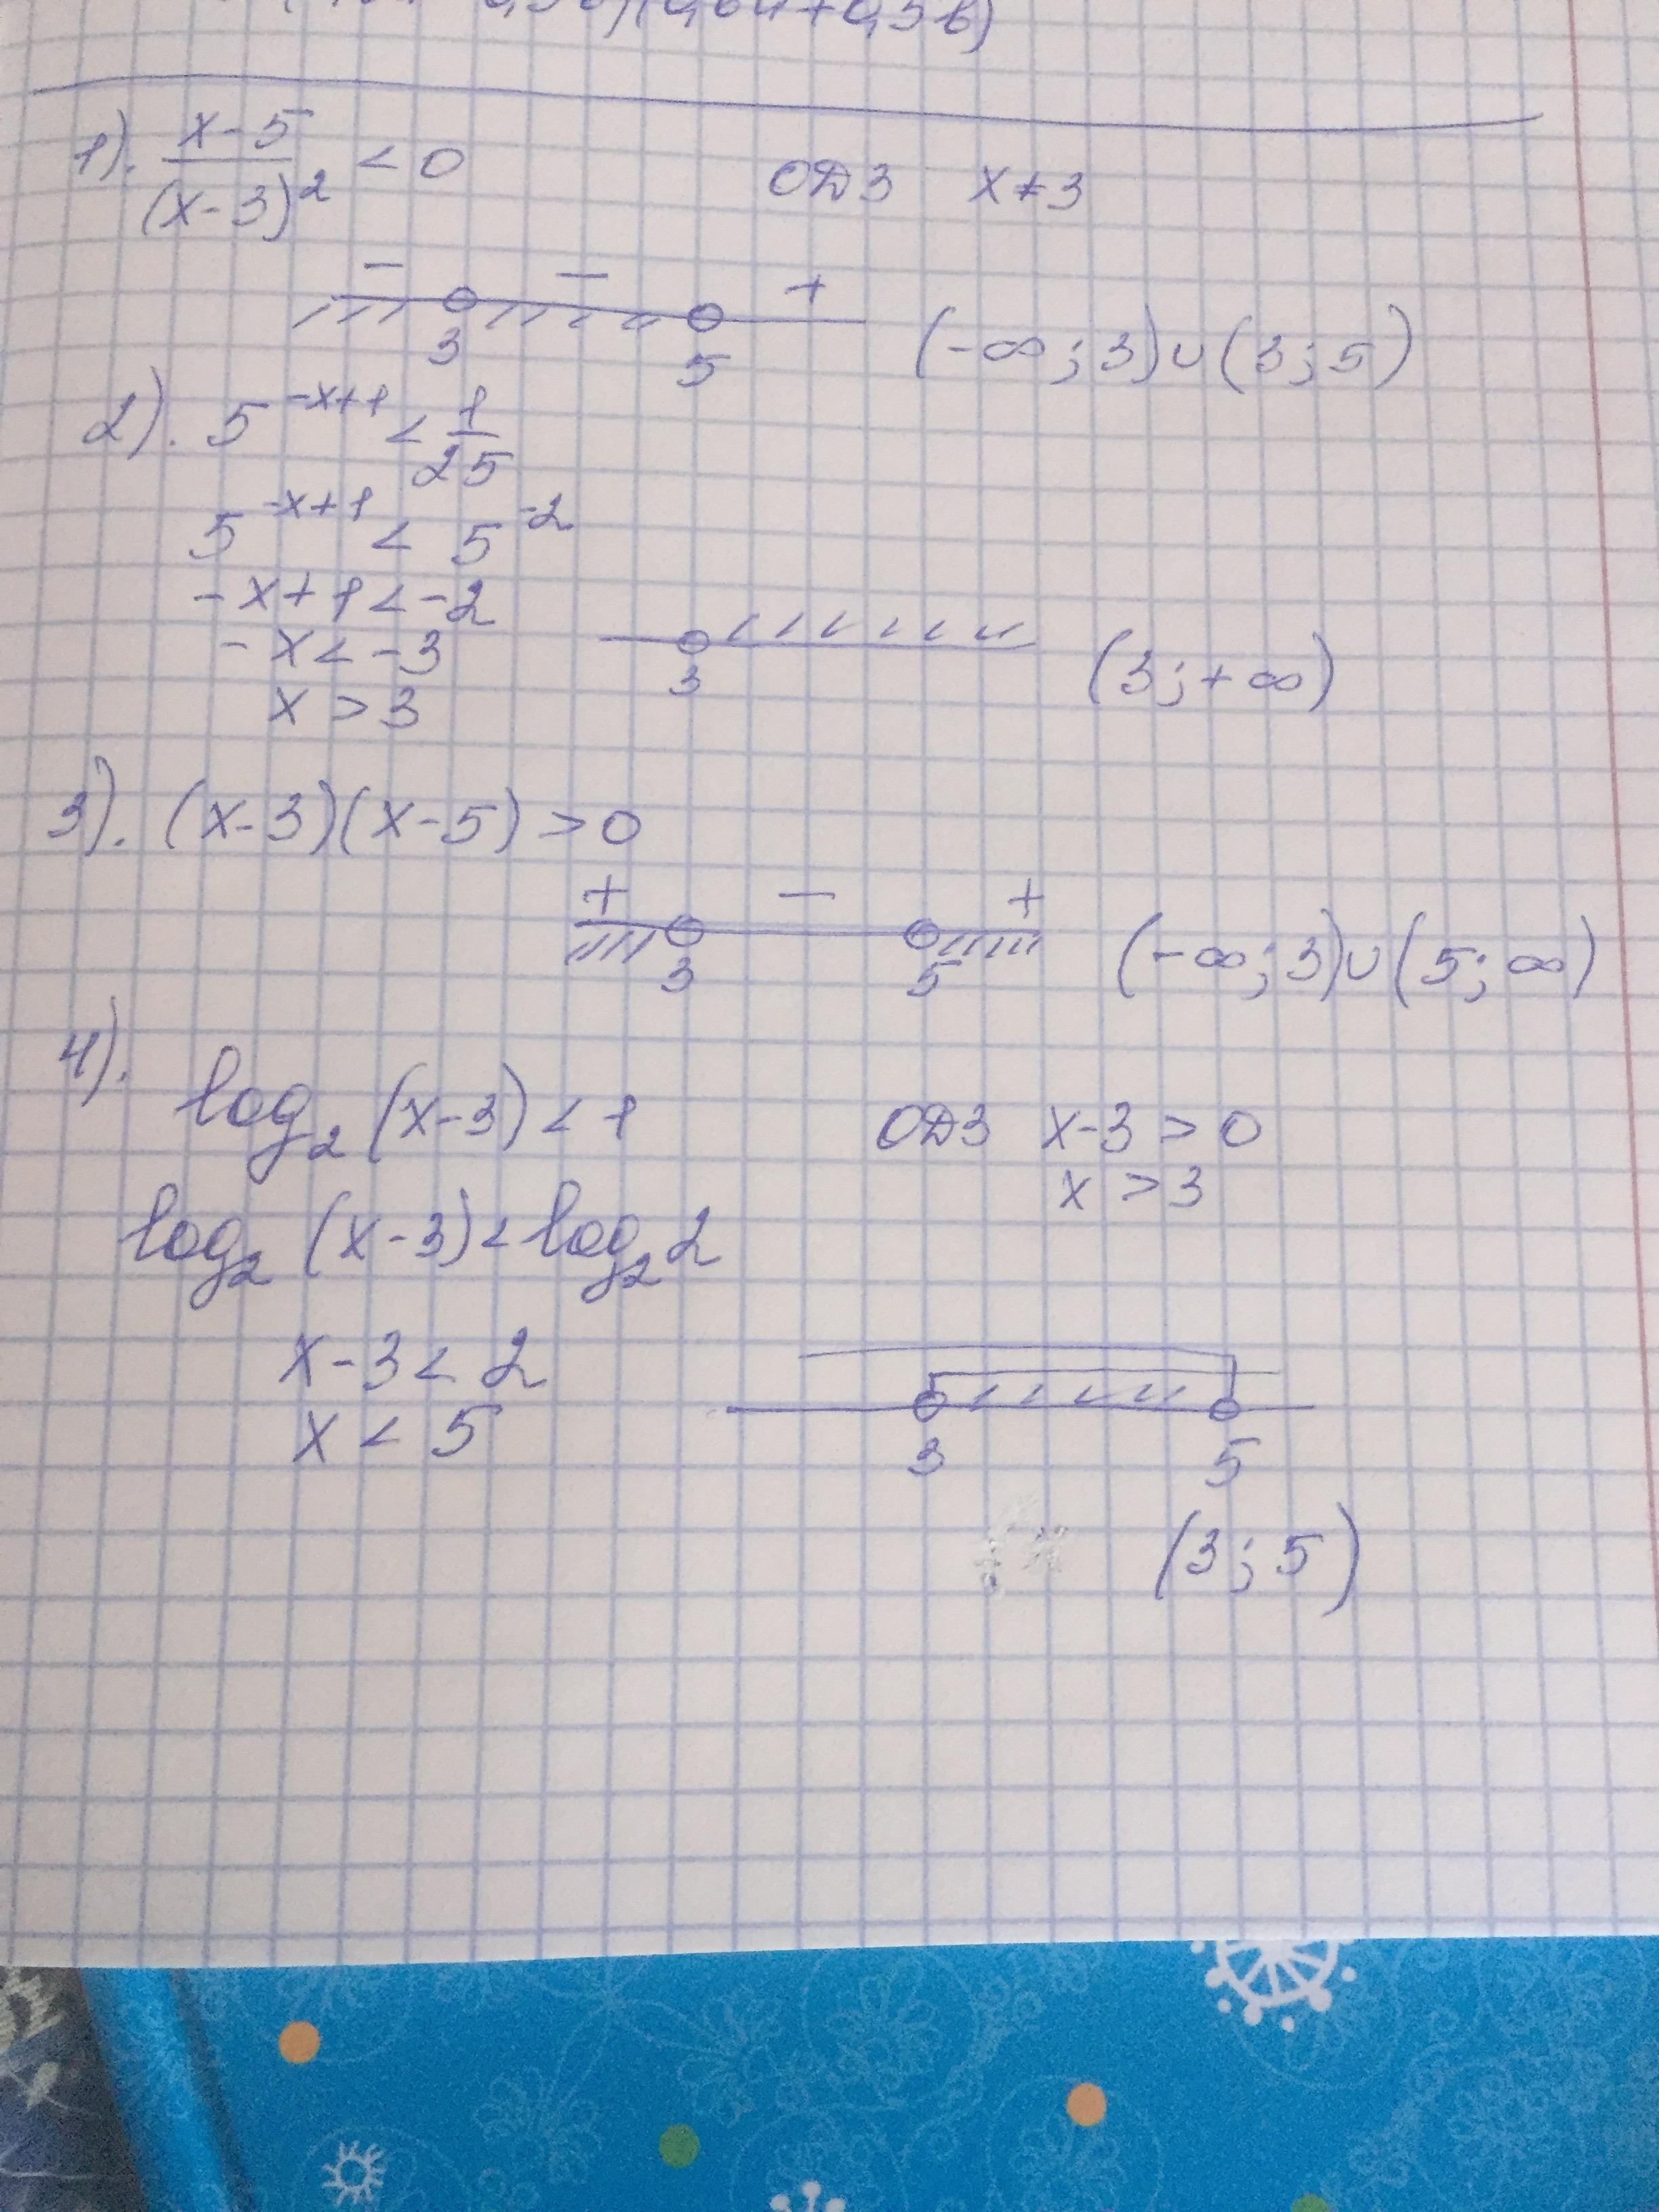 1). x-5 / (x-3)² < 0 ОДЗ x≠3
- - +
3 5 (-∞; 3)∪(3; 5)
2). 5^(-x+1) < 1/25
5^(-x+1) < 5^(-2)
-x+1<-2
-x<-3
3 (3; +∞)
x > 3
3). (x-3)(x-5) > 0
+ - +
3 5 (-∞; 3)∪(5; ∞)
4).
log₂ (x-3) < 1 ОДЗ x-3 > 0
x > 3
log₂ (x-3) < log₂ 2
x-3 < 2
x < 5
3 5
(3; 5)